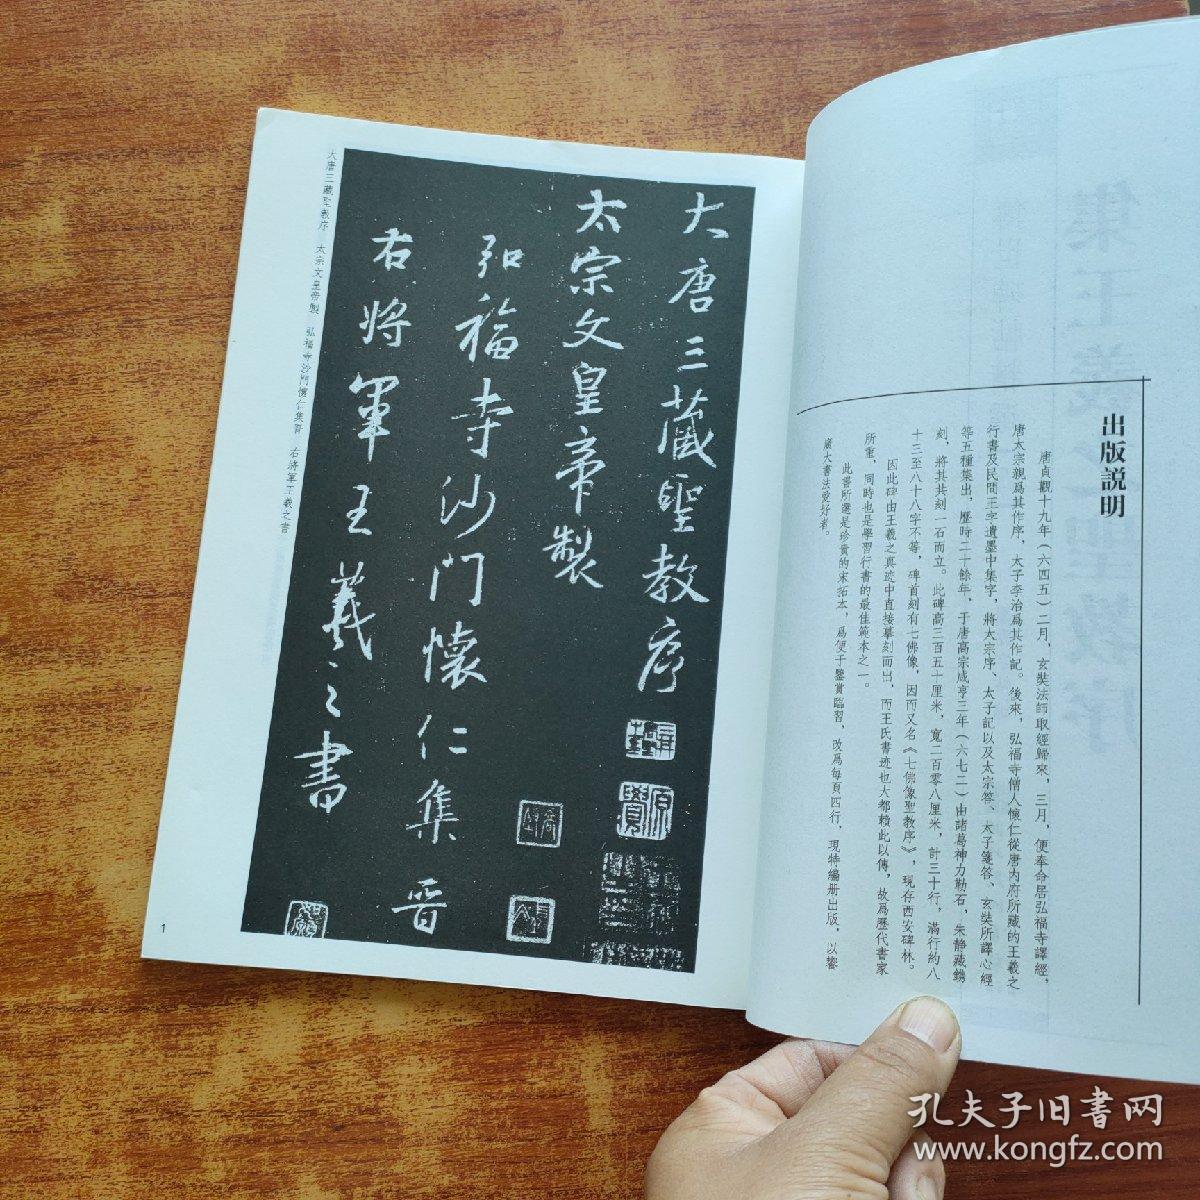 出版説明
唐貞觀十九年(六四五)二月,玄奘法師取經歸來,三月,便奉命居弘福寺譯經,
唐太宗親爲其作序,太子李治爲其作記。後來,弘福寺僧人懷仁從唐内府所藏的王羲之
行書及民間王字遺墨中集字,將太宗序、太子記以及太宗答、太子箋答、玄奘所譯心經
等五種集出,歷時二十餘年,于唐高宗咸亨三年(六七二)由諸葛神力勒石,朱静藏鐫
刻,將其共刻一石而立。此碑高三百五十厘米,寬二百零八厘米,計三十行,滿行約八
十三至八十八字不等,碑首刻有七佛像,因而又名《七佛像聖教序》,現存西安碑林。
因此碑由王羲之真迹中直接摹刻而出,而王氏書迹也大都賴此以傳,故爲歷代書家
所重,同時也是學習行書的最佳範本之一。
此書所選是珍貴的宋拓本,爲便于鑒賞臨習,改爲每頁四行,現特編册出版,以饗
廣大書法愛好者。
大唐三藏聖教序
太宗文皇帝製
弘福寺沙門懷仁集晋
右將軍王羲之書
大唐三藏聖教序 太宗文皇帝製 弘福寺沙門懷仁集晋 右將軍王羲之書
1
孔夫子旧书网
www.kongfz.com